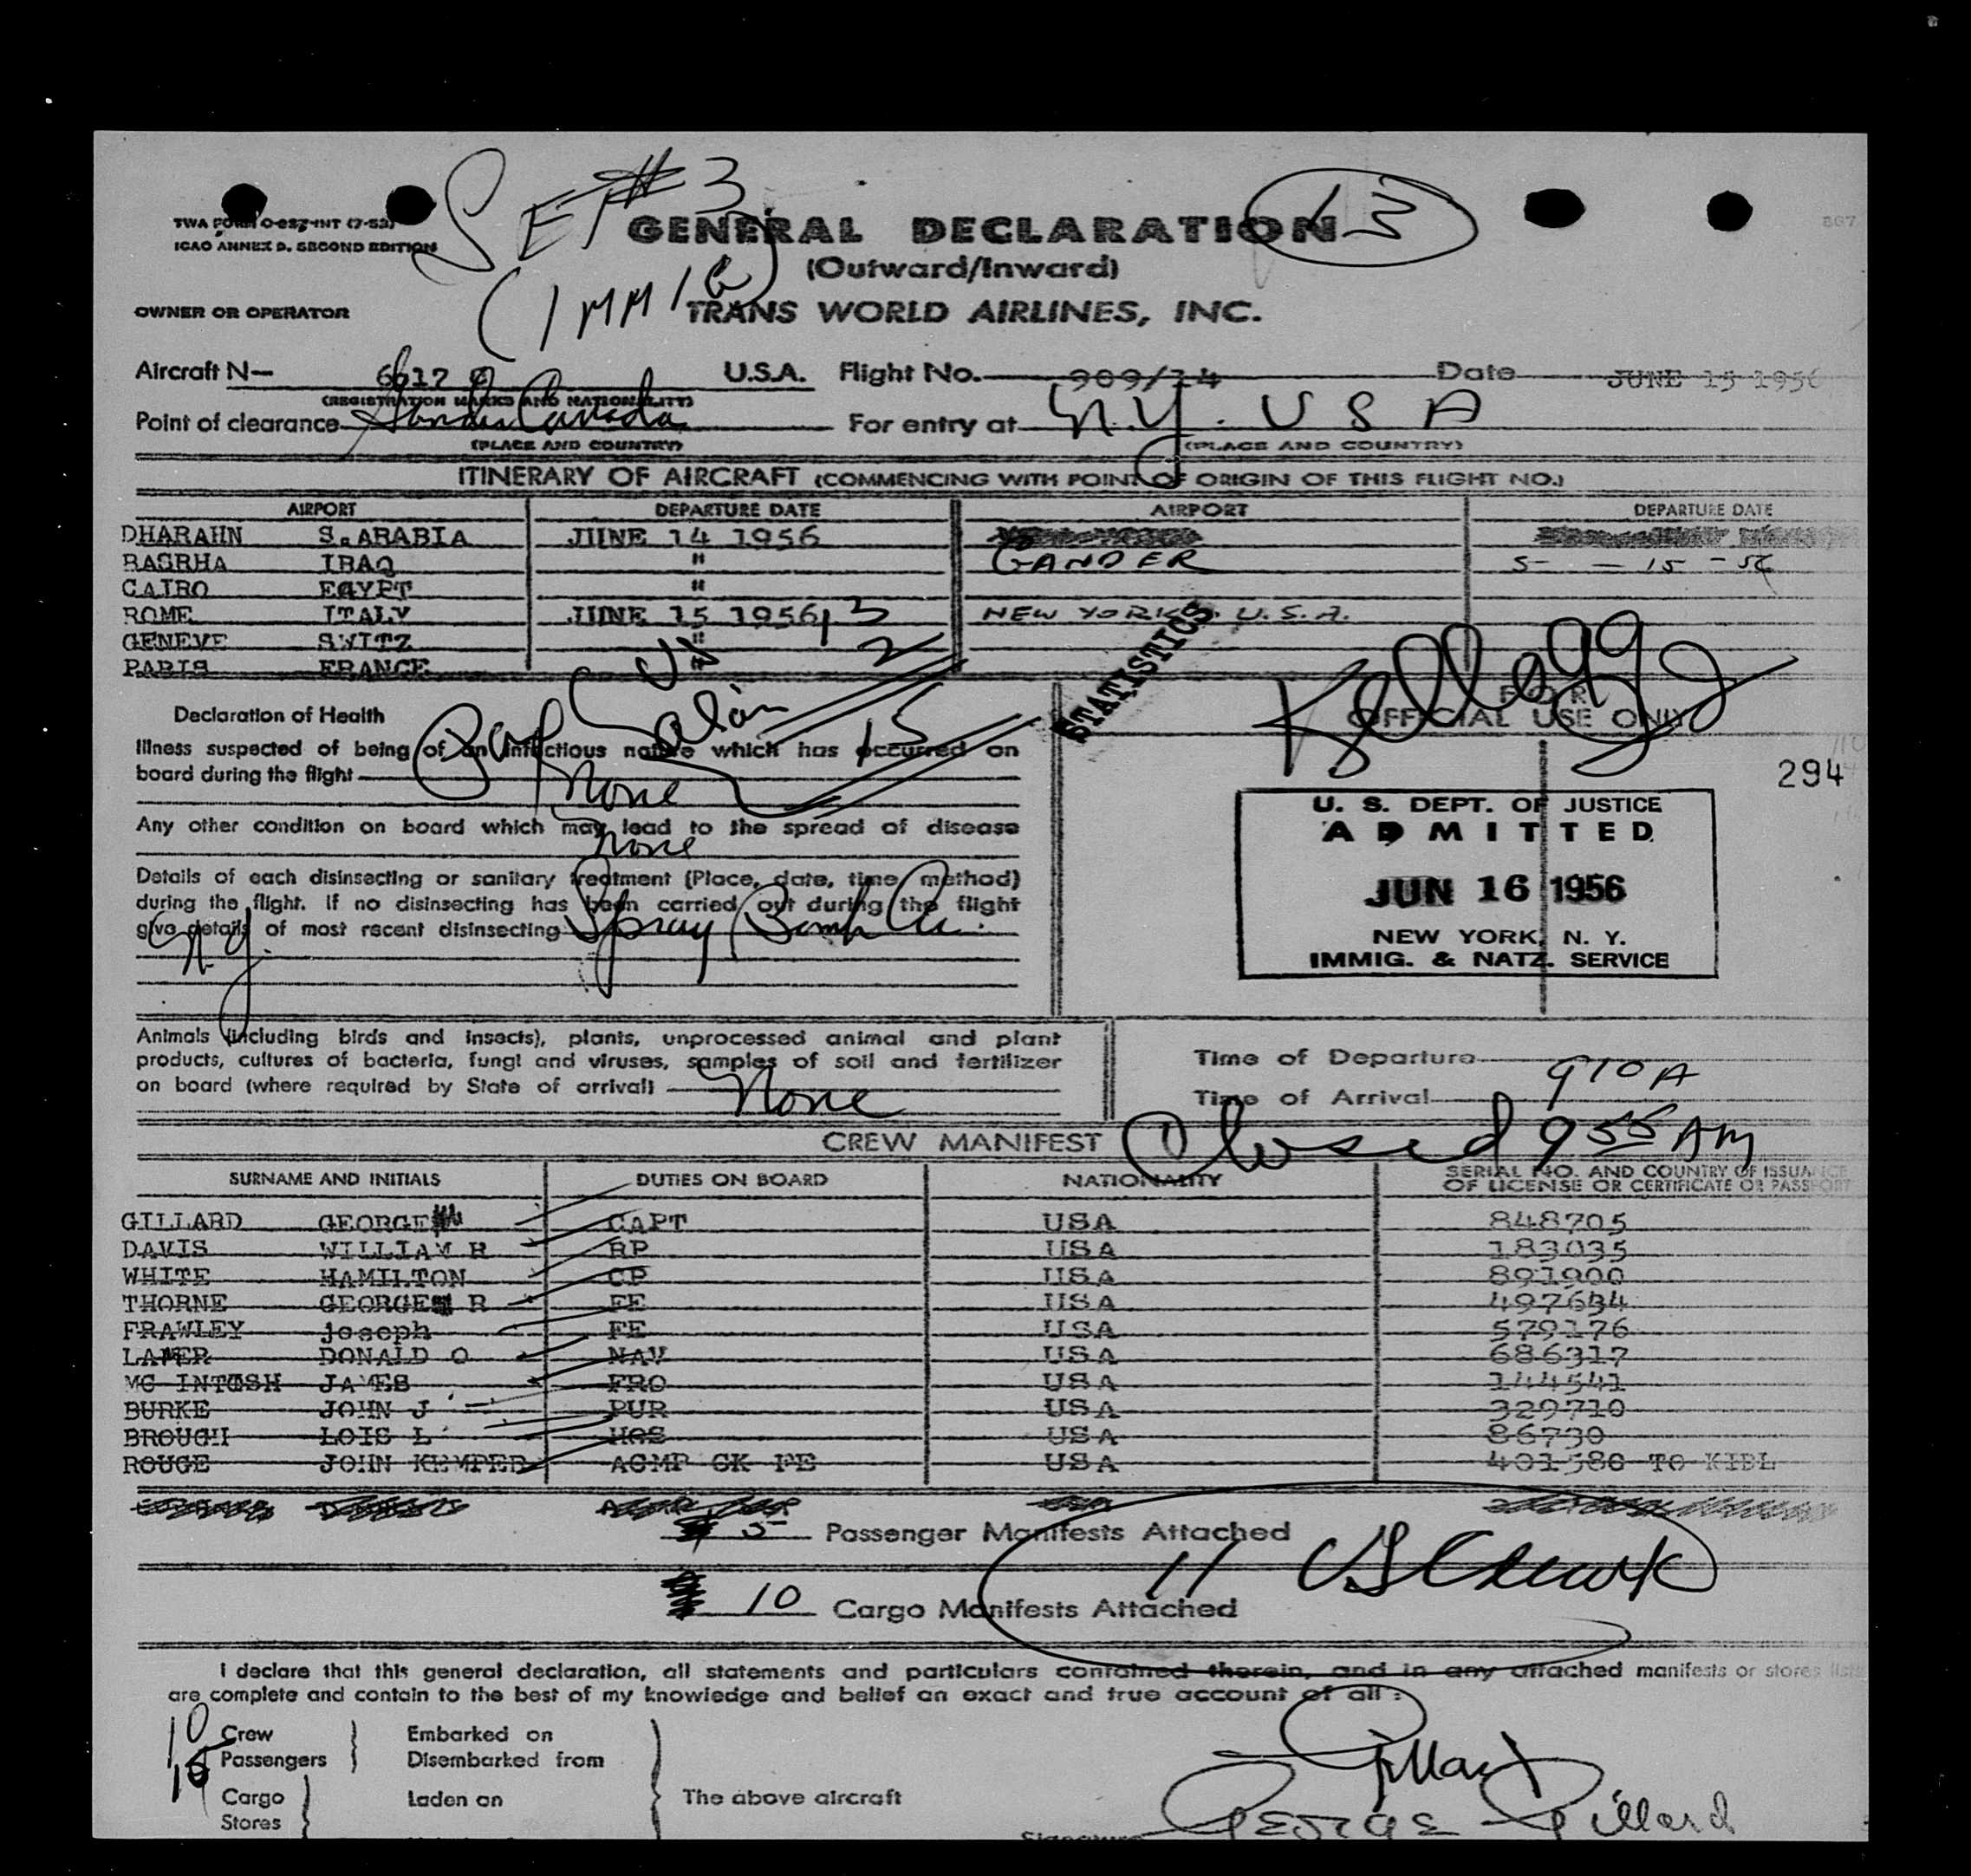 SET #3
(IMMIG)
13
TWA FORM O-037-INT (7-53)
ICAO ANNEX 9, SECOND EDITION
GENERAL DECLARATION
(Outward/Inward)
OWNER OR OPERATOR
TRANS WORLD AIRLINES, INC.
Aircraft N— 6017 C U.S.A. Flight No. 909/14 Date JUNE 15 1956
(REGISTRATION MARKS AND NATIONALITY)
Point of clearance Gander Canada For entry at N.Y. USA
(PLACE AND COUNTRY) (PLACE AND COUNTRY)
ITINERARY OF AIRCRAFT (COMMENCING WITH POINT OF ORIGIN OF THIS FLIGHT NO.)
AIRPORT DEPARTURE DATE AIRPORT DEPARTURE DATE
DHARAHN S. ARABIA JUNE 14 1956
BASRHA IRAQ " GANDER 5 - 15 - 56
CAIRO EGYPT "
ROME ITALY JUNE 15 1956 NEW YORK U.S.A.
GENEVE SWITZ "
PARIS FRANCE "
13
2
15
STATISTICS
Kellogg
FOR
OFFICIAL USE ONLY
Declaration of Health
Illness suspected of being of an infectious nature which has occurred on
board during the flight None
294
Any other condition on board which may lead to the spread of disease
None
U. S. DEPT. OF JUSTICE
ADMITTED
JUN 16 1956
NEW YORK, N. Y.
IMMIG. & NATZ. SERVICE
Details of each disinsecting or sanitary treatment (Place, date, time, method)
during the flight. If no disinsecting has been carried out during the flight
give details of most recent disinsecting Spray Bomb
N.Y.
Animals (including birds and insects), plants, unprocessed animal and plant
products, cultures of bacteria, fungi and viruses, samples of soil and fertilizer
on board (where required by State of arrival) None
Time of Departure
Time of Arrival 910 A
CREW MANIFEST Closed 955 AM
SURNAME AND INITIALS DUTIES ON BOARD NATIONALITY SERIAL NO. AND COUNTRY OF ISSUANCE
OF LICENSE OR CERTIFICATE OR PASSPORT
GILLARD GEORGE CAPT USA 848705
DAVIS WILLIAM H RP USA 183035
WHITE HAMILTON CP USA 891900
THORNE GEORGE R FE USA 497634
FRAWLEY Joseph FE USA 579176
LAMER DONALD O NAV USA 686317
MC INTOSH JAMES FRO USA 144541
BURKE JOHN J PUR USA 329710
BROUGH LOIS L HOS USA 86730
ROUGE JOHN KEMPER ACMP CK FE USA 401580 TO KIDL
5 Passenger Manifests Attached
11
10 Cargo Manifests Attached
I declare that this general declaration, all statements and particulars contained therein, and in any attached manifests or stores lists
are complete and contain to the best of my knowledge and belief an exact and true account of all:
10 Crew Embarked on
15 Passengers Disembarked from
Cargo Laden on The above aircraft
Stores
Gillard
GEORGE Gillard
Signature